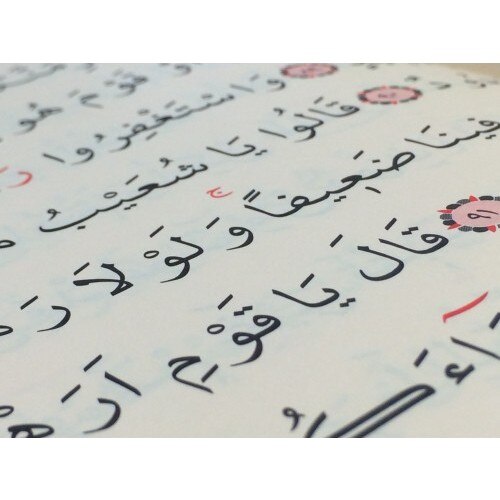 قَوْمَ هُو
وَاسْتَغْفِرُوا
٩٠ قَالُوا يَا شُعَيْبُ
فِينَا ضَعِيفاً وَلَوْلَا رَ
٩١ قَالَ يَا قَوْمِ اَرَهْ